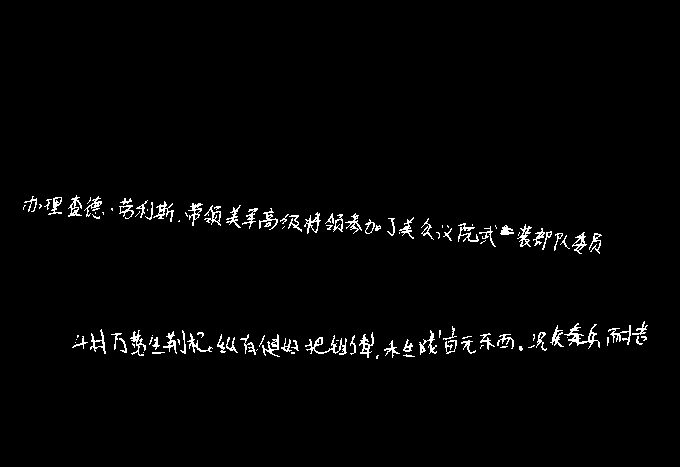 办理查德·劳利斯,带领美军高级将领参加了美众议院武装部队委员
村万落生荆杞。纵有健妇把锄犁,禾生陇亩无东西。况复秦兵耐苦